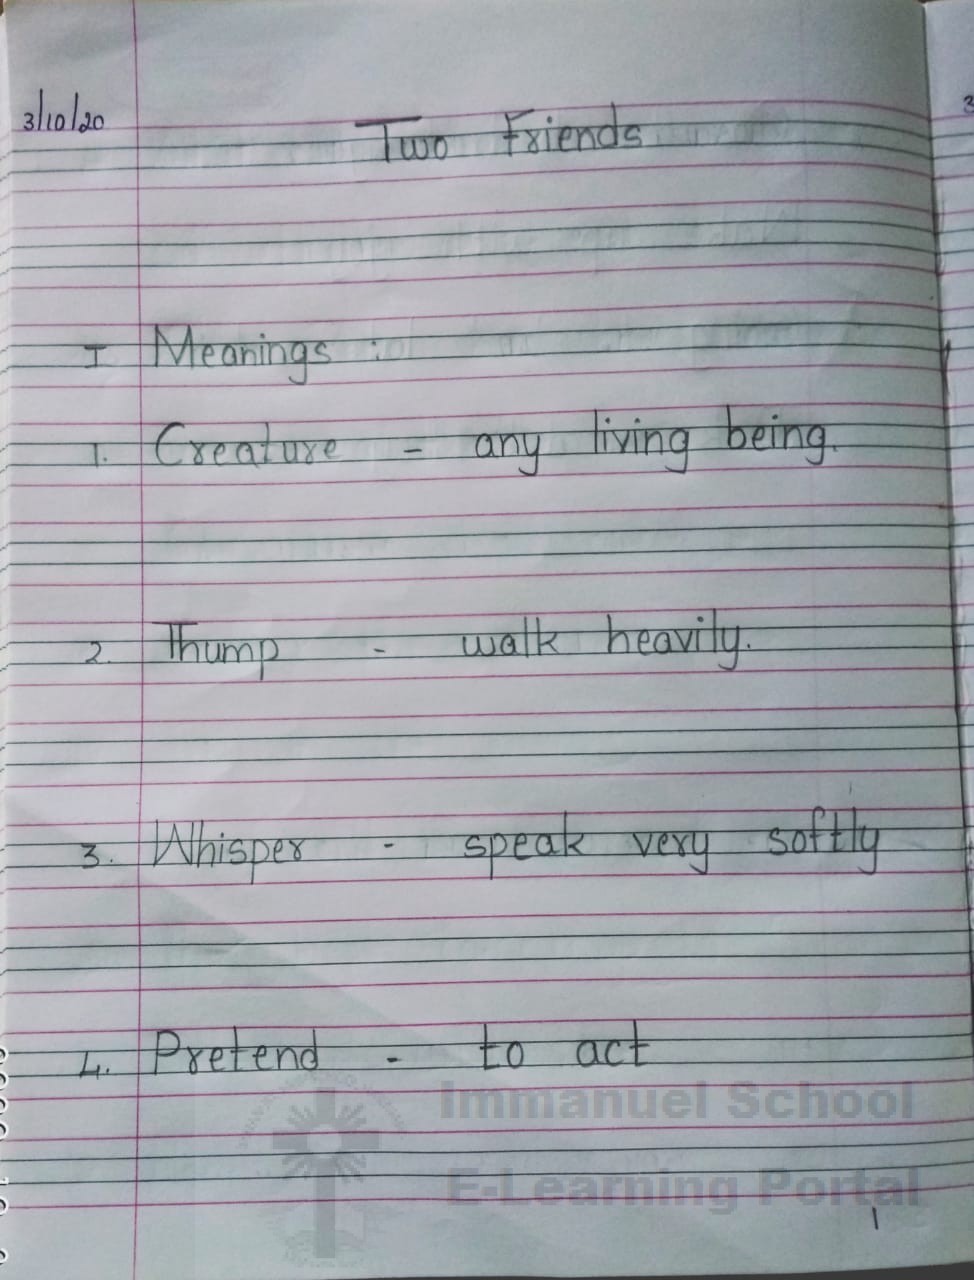 3/10/20
Two Friends
I Meanings :
1. Creature - any living being.
2. Thump - walk heavily.
3. Whisper - speak very softly
4. Pretend - to act
Immanuel School
E-Learning Portal
1